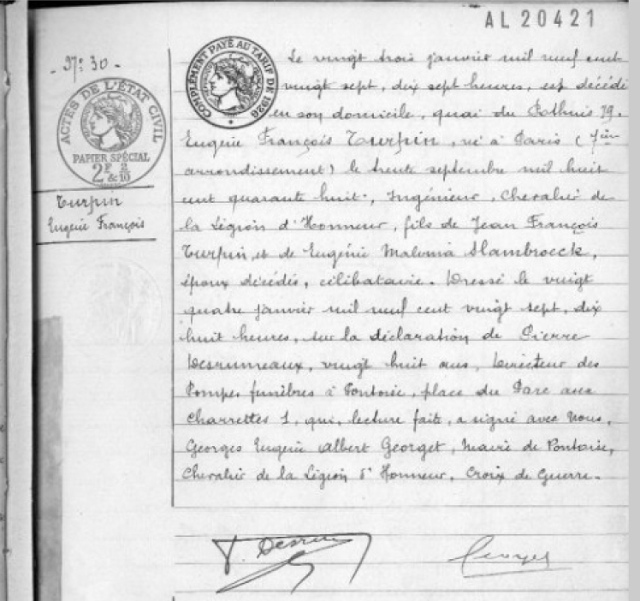 AL20421
N° 30
COMPLÉMENT PAYÉ AU TARIF DE 1926
ACTES DE L'ÉTAT CIVIL
PAPIER SPÉCIAL
2F &
Turpin
Eugène François
Le vingt trois janvier mil neuf cent
vingt sept, dix sept heures, est décédé
en son domicile, quai du Pothuis 79.
Eugène François Turpin, né à Paris (7ème
arrondissement) le trente septembre mil huit
cent quarante huit, Ingénieur, Chevalier de
la Légion d'Honneur, fils de Jean François
Turpin et de Eugénie Slambroeck,
époux décédés, célibataire. Dressé le vingt
quatre janvier mil neuf cent vingt sept, dix
huit heures, sur la déclaration de Pierre
Desrumeaux, vingt huit ans, Directeur des
Pompes funèbres à Pontoise, place du Parc aux
Charrettes 1, qui, lecture faite, a signé avec Nous,
Georges Eugène Albert Georget, Maire de Pontoise,
Chevalier de la Légion d'Honneur, Croix de Guerre.